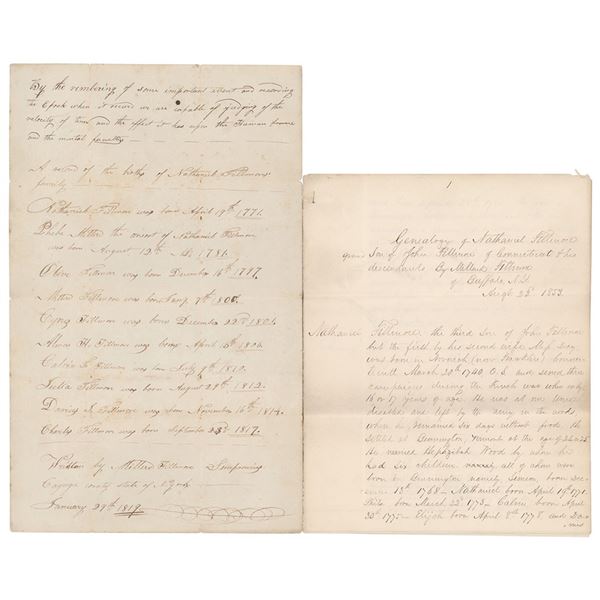 By the numbering of some important event and recording
the Epoch when it we are capable of judging of the
velocity of time and the effect it has upon the Human frame
and the mental faculties
A record of the births of Nathaniel Fillmores
family
Nathaniel Fillmore was born April 19th 1771.
Phebe Millard the consort of Nathaniel Fillmore
was born August 12th 1781.
Olive Fillmore was born December 16th 1797
Millard Fillmore was born January 7th 1800.
Cyrus Fillmore was born December 22nd 1801.
Almon H. Fillmore was born April 13th 1806.
Calvin T. Fillmore was born July 9th 1810.
Julia Fillmore was born August 29th 1812.
Darius I. Fillmore was born November 16th 1814.
Charles Fillmore was born September 23d 1817.
Written by Millard Fillmore Sempronius
Cayuga county state of N.York
January 29th 1819.
1
Genealogy of Nathaniel Fillmore
grand Son of John Fillmore of Connecticut & his
descendants By Millard Fillmore
of Buffalo N.Y.
Augt 23d 1853.
Nathaniel Fillmore, the third Son of John Fillmore
but the first by his second wife Miss Day
was born in Norwich (now Franklin) Connec-
ticutt March 20th 1740, O.S. and served
campaigns during the French war when only
16 or 17 years of age. He was at one time
disabled and left by the army in the woods
where he remained six days without food. He
settled at Bennington, Vermont at the age of
He married Hephzibah Wood by whom he
had six children namely, all of whom were
born in Bennington namely Simeon, born Dec-
ember 13th 1768 - Nathaniel born April 19th 1771.
born March 22d 1773 - Calvin born April
30th 1775 - Elijah born April 8th 1778, and Dar-
ius